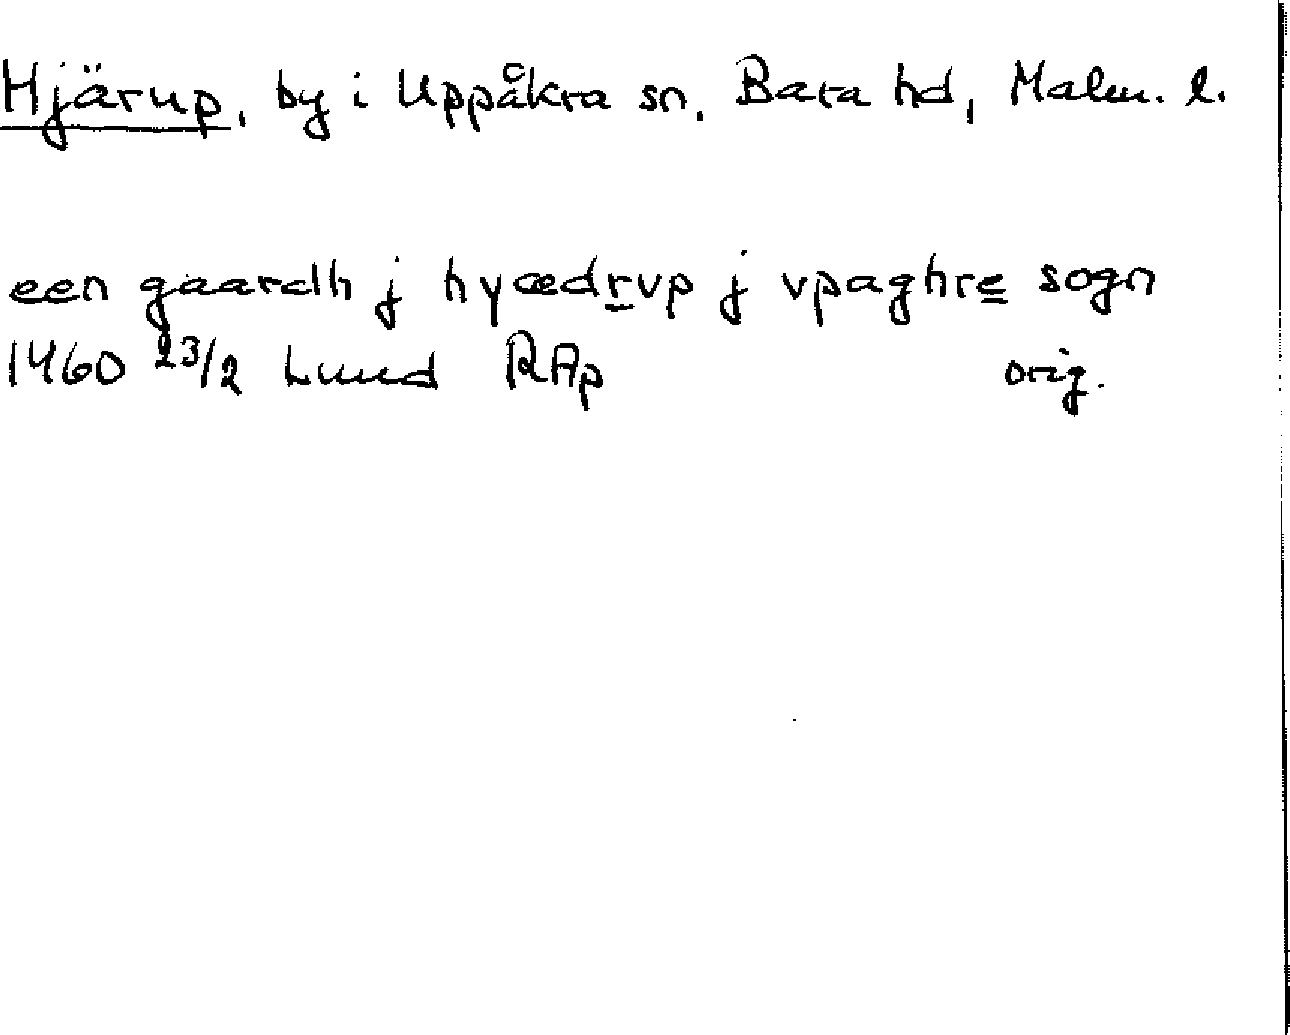 Hjärup, by i Uppåkra sn. Bara hd, Malm. l.
een gaardh j hyædrvp j vpaghre sogn
1460 23/2 Lund RAp orig.